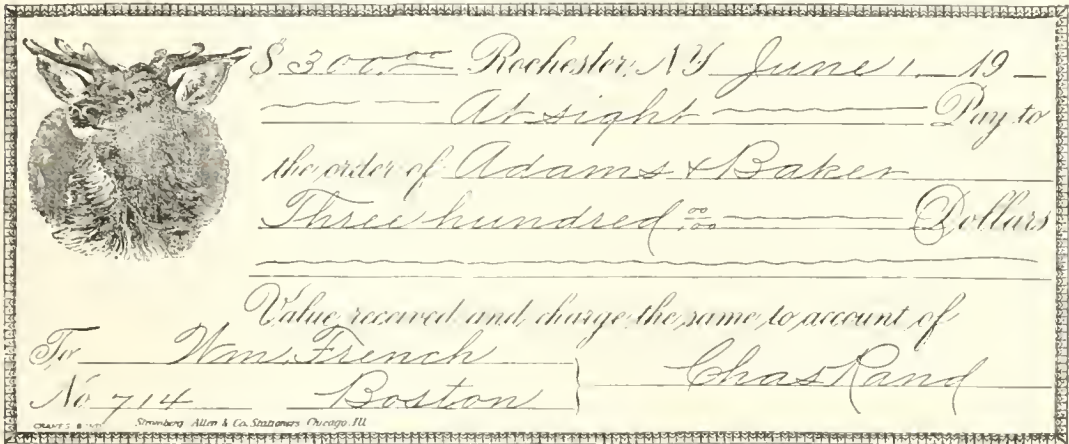 $ 300.00 Rochester, NY June 1 19
At sight Pay to
the order of Adams & Baker
Three hundred 00/100 Dollars
Value received and charge the same to account of
To Wm. French
Chas Rand
No 714 Boston
Stromberg Allen & Co. Stationers Chicago. Ill.